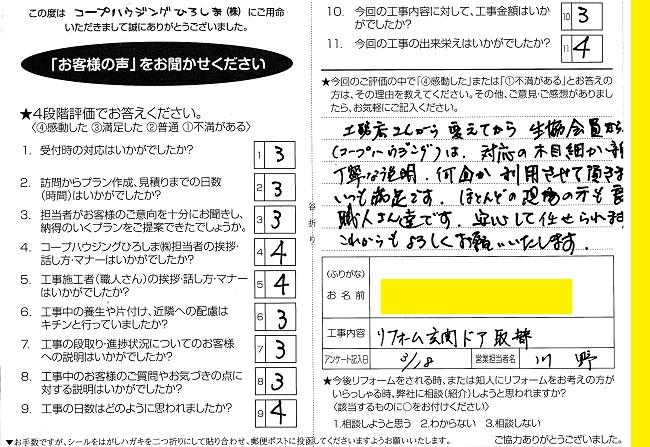 この度は コープハウジングひろしま(株) にご用命
いただきまして誠にありがとうございました。
「お客様の声」をお聞かせください
★4段階評価でお答えください。
〈④感動した ③満足した ②普通 ①不満がある〉
1. 受付時の対応はいかがでしたか? 1 3
2. 訪問からプラン作成、見積りまでの日数
(時間)はいかがでしたか? 2 3
3. 担当者がお客様のご意向を十分にお聞きし、
納得のいくプランをご提案できたでしょうか。 3 3
4. コープハウジングひろしま㈱担当者の挨拶・
話し方・マナーはいかがでしたか? 4 4
5. 工事施工者(職人さん)の挨拶・話し方・マナー
はいかがでしたか? 5 4
6. 工事中の養生や片付け、近隣への配慮は
キチンと行っていましたか? 6 3
7. 工事の段取り・進捗状況についてのお客様
への説明はいかがでしたか? 7 3
8. 工事中のお客様のご質問やお気づきの点に
対する説明はいかがでしたか? 8 3
9. 工事の日数はどのように思われましたか? 9 4
▼お手数ですが、シールをはがしハガキを二つ折りにして貼り合わせ、郵便ポストに投函してくださいますようお願いいたします。
谷折り
10. 今回の工事内容に対して、工事金額はいか
がでしたか? 10 3
11. 今回の工事の出来栄えはいかがでしたか? 11 4
★今回のご評価の中で「④感動した」または「①不満がある」とお答えの
方は、その理由を教えてください。その他、ご意見・ご感想がありました
ら、お気軽にご記入ください。
変えてから 生協会員
(コープハウジング)は、対応の木目細か
丁寧な説明、何回か利用させて頂き
いつも満足です。ほとんどの現場の方も
職人さん達です。安心して任せられま
これからもよろしくお願いいたします。
(ふりがな)
お 名 前
工事内容 リフォーム玄関ドア取替
アンケート記入日 3/18 営業担当者名 川野
★今後リフォームをされる時、または知人にリフォームをお考えの方が
いらっしゃる時、弊社に相談(紹介)しようと思いますか?
〈該当するものに○をお付けください〉
1.相談しようと思う 2.わからない 3.相談しない
ご協力ありがとうございました。